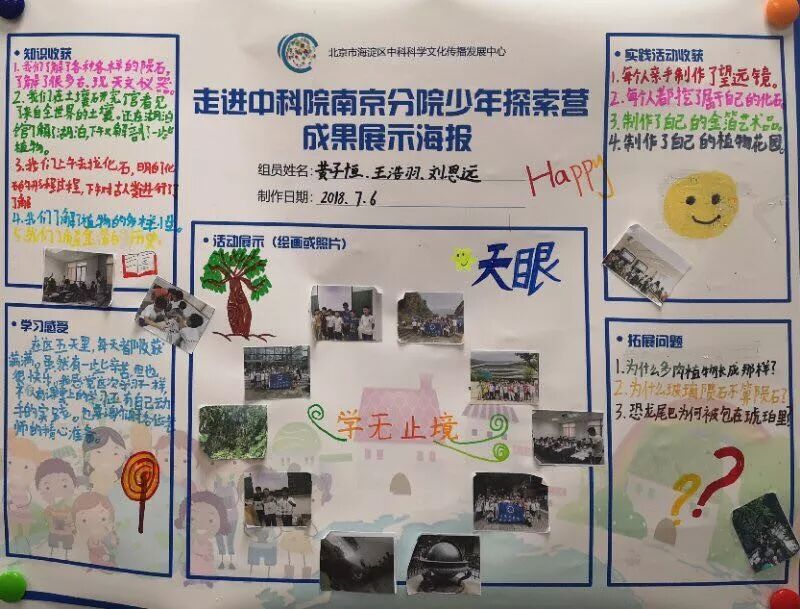 北京市海淀区中科科学文化传播发展中心
走进中科院南京分院少年探索营
成果展示海报
组员姓名: 黄子恒、王浩羽、刘恩远
制作日期: 2018.7.6
Happy
知识收获
1.我们了解了各种各样的陨石,
了解了很多古、现天文仪器。
2.我们在土壤石展览馆看见
了来自全世界的土壤。还在湖泊
馆了解了湖泊,下午又解剖了一些
植物。
3.我们上午去挖化石,明白化
石的形成过程,下午对古人类进行了
了解
4.我们了解植物的多样性。
学习感受
在这五天里,每天都收获
满满。虽然有一些辛苦,但也
很快乐。
师的精心准备。
活动展示(绘画或照片)
天眼
学无止境
实践活动收获
1.每个人亲手制作了望远镜。
2.每个人都挖了属于自己的化石
3.制作了自己的金箔艺术品。
4.制作了自己的植物花园。
拓展问题
1.为什么多肉植物长成那样?
2.为什么玻璃陨石不算陨石?
3.恐龙尾巴为何被包在琥珀里
??